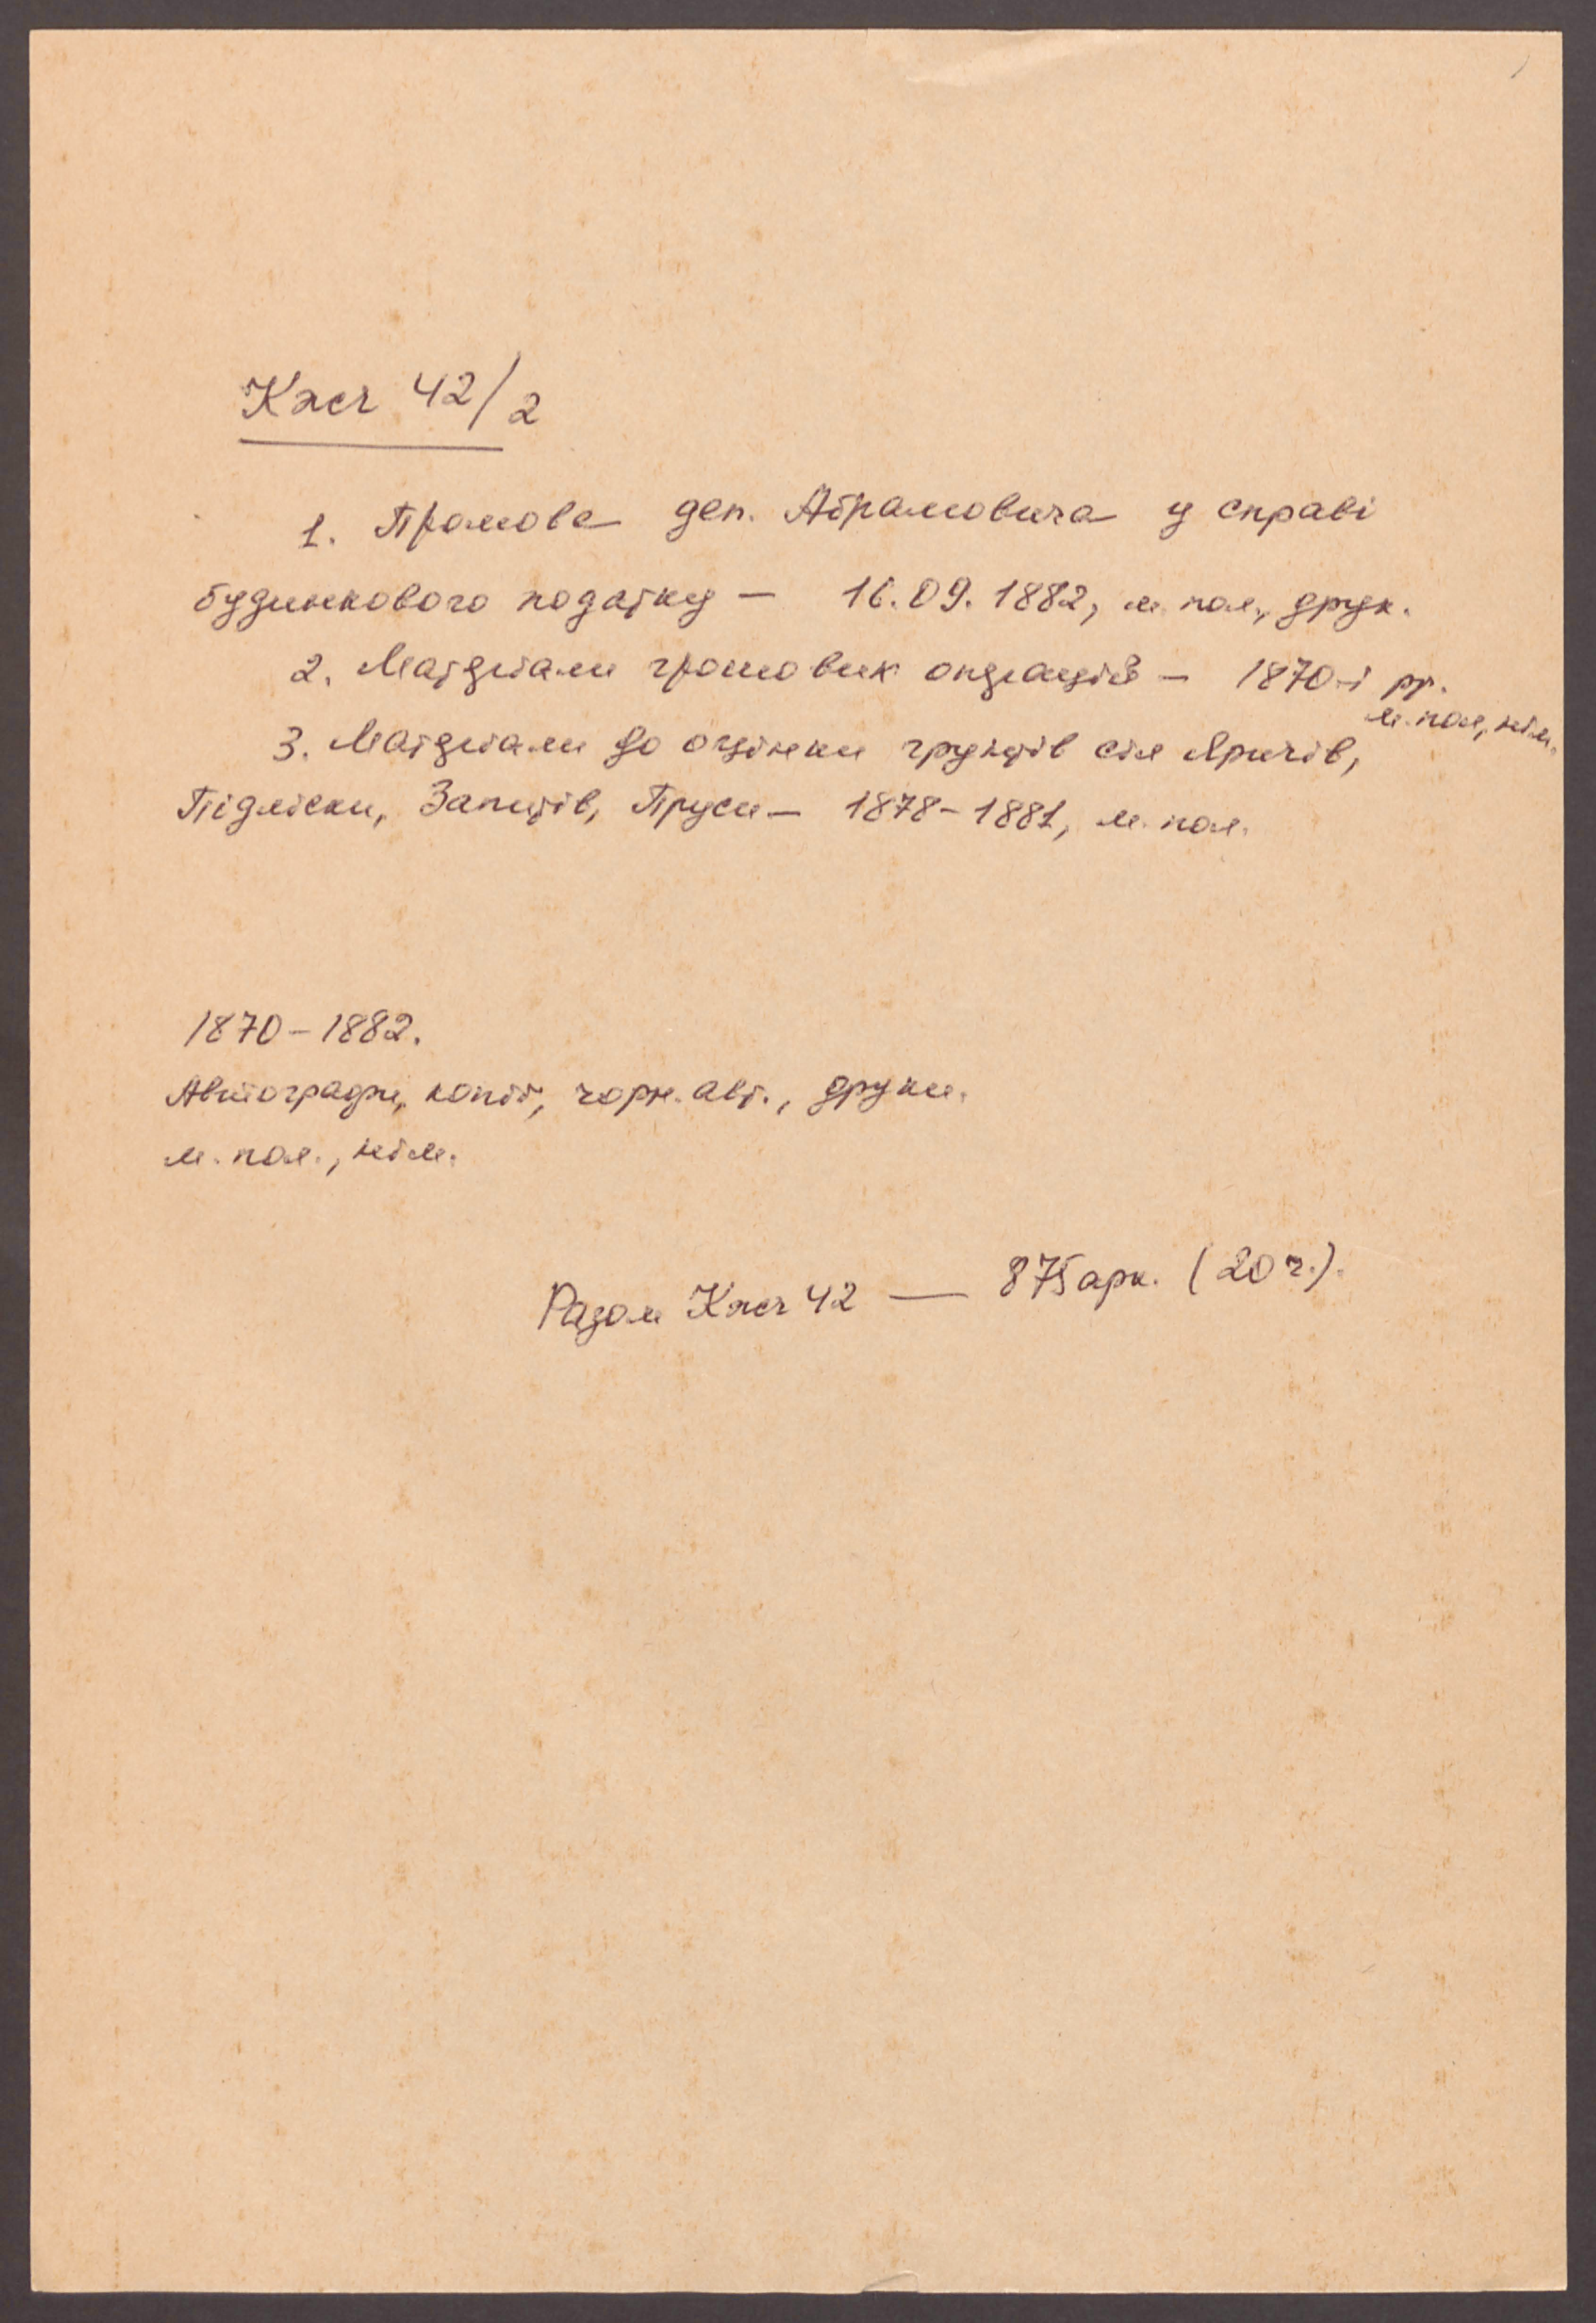 Кжеч 42/2
1. Промова деп. Абрамовича у справі
будинкового податку — 16.09.1882, м. пол., друк.
2. Матеріали грошових операцій — 1870-і рр.
м. пол., нім.
3. Матеріали до оцінки грунтів сіл Яричів,
Підліски, Запитів, Пруси — 1878-1881, м. пол.
1870-1882.
Автографи, копії, чорн. авт., друки.
м. пол., нім.
Разом Кжеч 42 — 875 арк. (20 ч.).